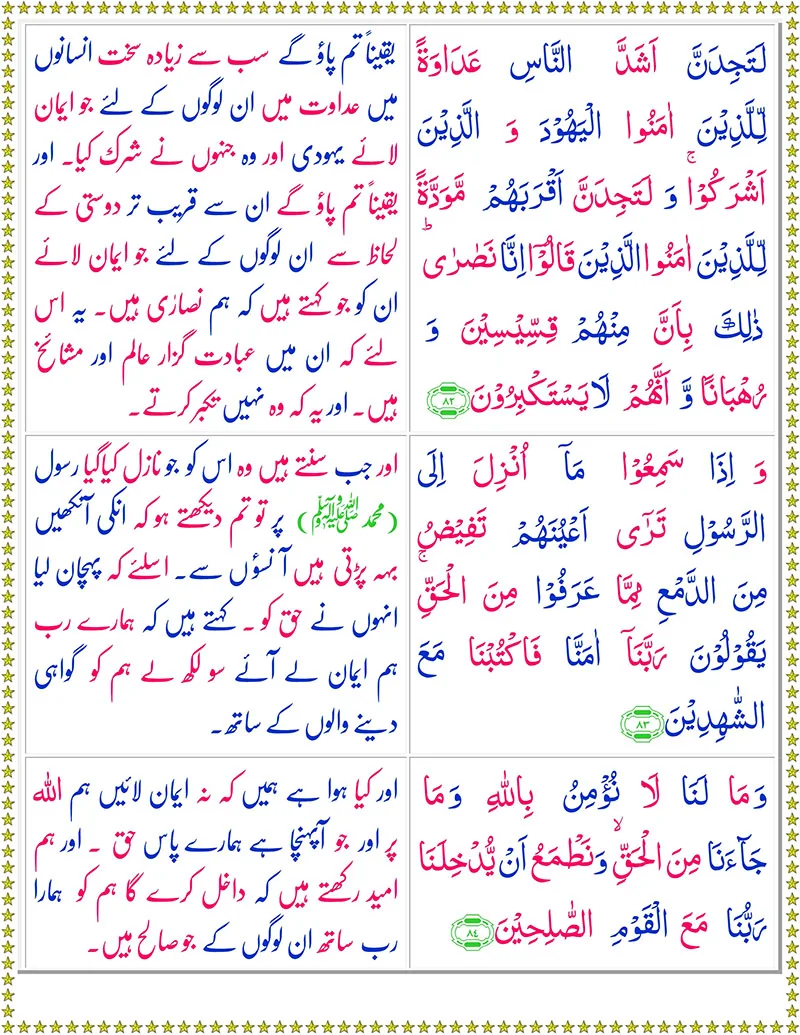 لَتَجِدَنَّ اَشَدَّ النَّاسِ عَدَاوَةً
لِّلَّذِيْنَ اٰمَنُوا الْيَهُوْدَ وَ الَّذِيْنَ
اَشْرَكُوْا ۚ وَ لَتَجِدَنَّ اَقْرَبَهُمْ مَّوَدَّةً
لِّلَّذِيْنَ اٰمَنُوا الَّذِيْنَ قَالُوْۤا اِنَّا نَصٰرٰى ؕ
ذٰلِكَ بِاَنَّ مِنْهُمْ قِسِّيْسِيْنَ وَ
رُهْبَانًا وَّ اَنَّهُمْ لَا يَسْتَكْبِرُوْنَ ﴿۸۲﴾
یقیناً تم پاؤ گے سب سے زیادہ سخت انسانوں
میں عداوت میں ان لوگوں کے لئے جو ایمان
لائے یہودی اور وہ جنہوں نے شرک کیا۔ اور
یقیناً تم پاؤ گے ان سے قریب تر دوستی کے
لحاظ سے ان لوگوں کے لئے جو ایمان لائے
ان کو جو کہتے ہیں کہ ہم نصارٰی ہیں۔ یہ اس
لئے کہ ان میں عبادت گزار عالم اور مشائخ
ہیں۔ اور یہ کہ وہ نہیں تکبر کرتے۔
وَ اِذَا سَمِعُوْا مَاۤ اُنْزِلَ اِلَى
الرَّسُوْلِ تَرٰۤى اَعْيُنَهُمْ تَفِيْضُ
مِنَ الدَّمْعِ مِمَّا عَرَفُوْا مِنَ الْحَقِّ ۚ
يَقُوْلُوْنَ رَبَّنَاۤ اٰمَنَّا فَاكْتُبْنَا مَعَ
الشّٰهِدِيْنَ ﴿۸۳﴾
اور جب سنتے ہیں وہ اس کو جو نازل کیا گیا رسول
(محمد ﷺ) پر تو تم دیکھتے ہو کہ انکی آنکھیں
بہہ پڑتی ہیں آنسؤں سے۔ اسلئے کہ پہچان لیا
انہوں نے حق کو۔ کہتے ہیں کہ ہمارے رب
ہم ایمان لے آئے سو لکھ لے ہم کو گواہی
دینے والوں کے ساتھ۔
وَ مَا لَنَا لَا نُؤْمِنُ بِاللّٰهِ وَ مَا
جَآءَنَا مِنَ الْحَقِّ ۙ وَ نَطْمَعُ اَنْ يُّدْخِلَنَا
رَبُّنَا مَعَ الْقَوْمِ الصّٰلِحِيْنَ ﴿۸۴﴾
اور کیا ہوا ہے ہمیں کہ نہ ایمان لائیں ہم اللہ
پر اور جو آپہنچا ہے ہمارے پاس حق ۔ اور ہم
امید رکھتے ہیں کہ داخل کرے گا ہم کو ہمارا
رب ساتھ ان لوگوں کے جو صالح ہیں۔